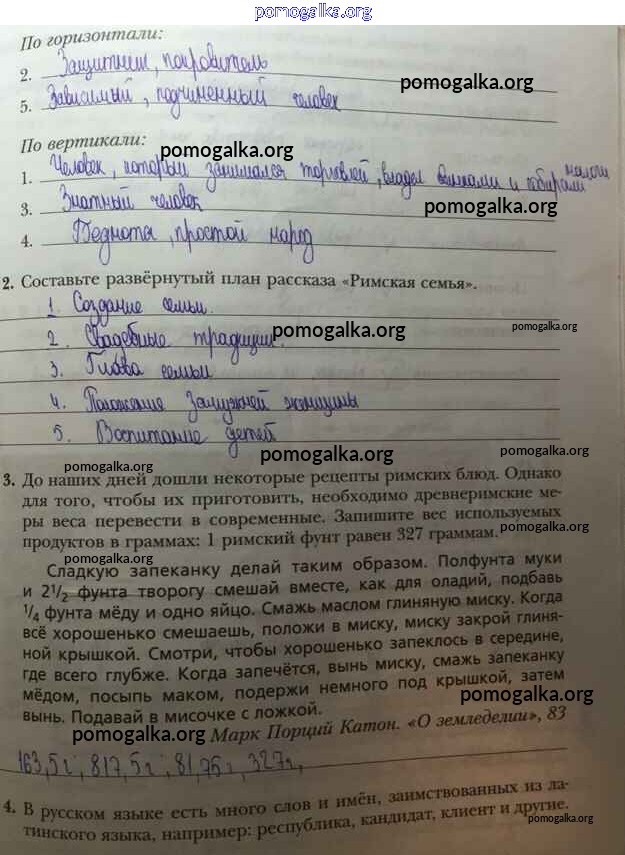 pomogalka.org
По горизонтали:
2. Защитник, покровитель
pomogalka.org
5. Зависимый, подчиненный человек
По вертикали:
pomogalka.org
1. Человек, который занимался торговлей, владел банками и собирали налоги
3. Знатный человек
pomogalka.org
4. Беднота, простой народ
2. Составьте развёрнутый план рассказа «Римская семья».
1. Создание семьи.
2. Свадебные традиции.
pomogalka.org
pomogalka.org
3. Глава семьи
4. Положение замужней женщины
5. Воспитание детей
pomogalka.org
pomogalka.org
pomogalka.org
3. До наших дней дошли некоторые рецепты римских блюд. Однако
для того, чтобы их приготовить, необходимо древнеримские ме-
ры веса перевести в современные. Запишите вес используемых
продуктов в граммах: 1 римский фунт равен 327 граммам.
pomogalka.org
pomogalka.org
Сладкую запеканку делай таким образом. Полфунта муки
и 2 1/2 фунта творогу смешай вместе, как для оладий, подбавь
1/4 фунта мёду и одно яйцо. Смажь маслом глиняную миску. Когда
всё хорошенько смешаешь, положи в миску, миску закрой глиня-
ной крышкой. Смотри, чтобы хорошенько запеклось в середине,
где всего глубже. Когда запечётся, вынь миску, смажь запеканку
мёдом, посыпь маком, подержи немного под крышкой, затем
pomogalka.org
вынь. Подавай в мисочке с ложкой.
pomogalka.org
Марк Порций Катон. «О земледелии», 83
163,5г; 817,5г; 81,75г, 327г,
4. В русском языке есть много слов и имён, заимствованных из ла-
тинского языка, например: республика, кандидат, клиент и другие.
pomogalka.org